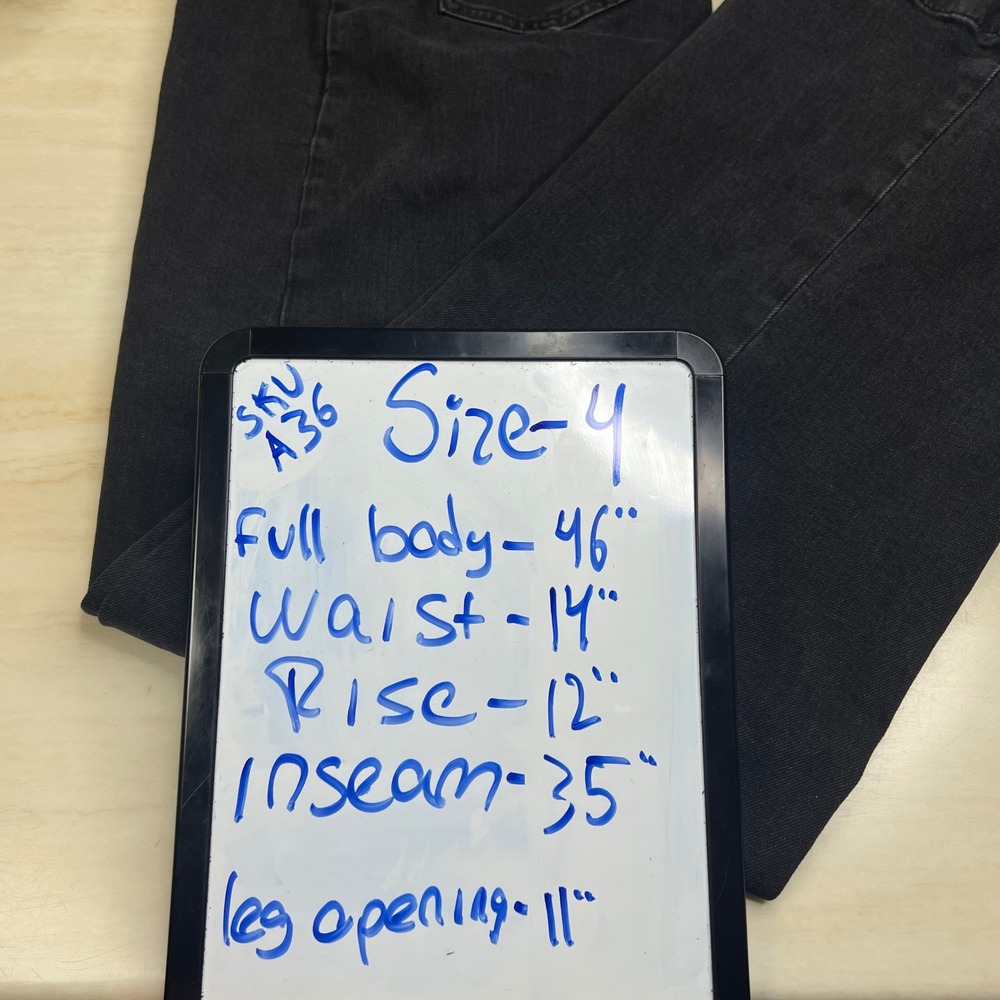 SKU
A36
Size-4
Full body-46"
Waist-14"
Rise-12"
Inseam-35"
leg opening-11"